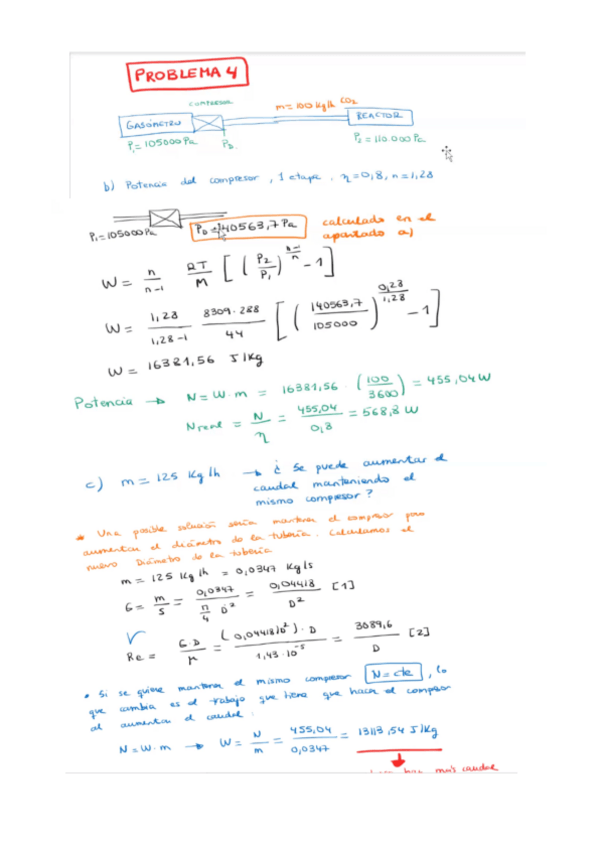 PROBLEMA 4
COMPRESOR
m = 100 kg/h CO2
GASÓMETRO
REACTOR
P1 = 105000 Pa
PD
P2 = 110.000 Pa
b) Potencia del compresor, 1 etapa. η = 0,8, n = 1,28
P1 = 105000 Pa
PD = 140563,7 Pa
calculado en el
apartado a)
W = n/(n-1) RT/M [ (P2/P1)^((n-1)/n) - 1 ]
W = 1,28/(1,28-1) 8309·288/44 [ (140563,7/105000)^(0,28/1,28) - 1 ]
W = 16381,56 J/kg
Potencia → N = W·m = 16381,56 · (100/3600) = 455,04 W
Nreal = N/η = 455,04/0,8 = 568,8 W
c) m = 125 kg/h → ¿ Se puede aumentar el
caudal manteniendo el
mismo compresor?
* Una posible solución sería mantener el compresor pero
aumentar el diámetro de la tubería. Calculamos el
nuevo Diámetro de la tubería
m = 125 kg/h = 0,0347 kg/s
G = m/S = 0,0347/(π/4 D²) = 0,04418/D² [1]
Re = G·D/μ = (0,04418/D²)·D/1,43·10⁻⁵ = 3089,6/D [2]
• Si se quiere mantener el mismo compresor N = cte, lo
que cambia es el trabajo que tiene que hacer el compresor
al aumentar el caudal:
N = W·m → W = N/m = 455,04/0,0347 = 13113,54 J/kg
más caudal